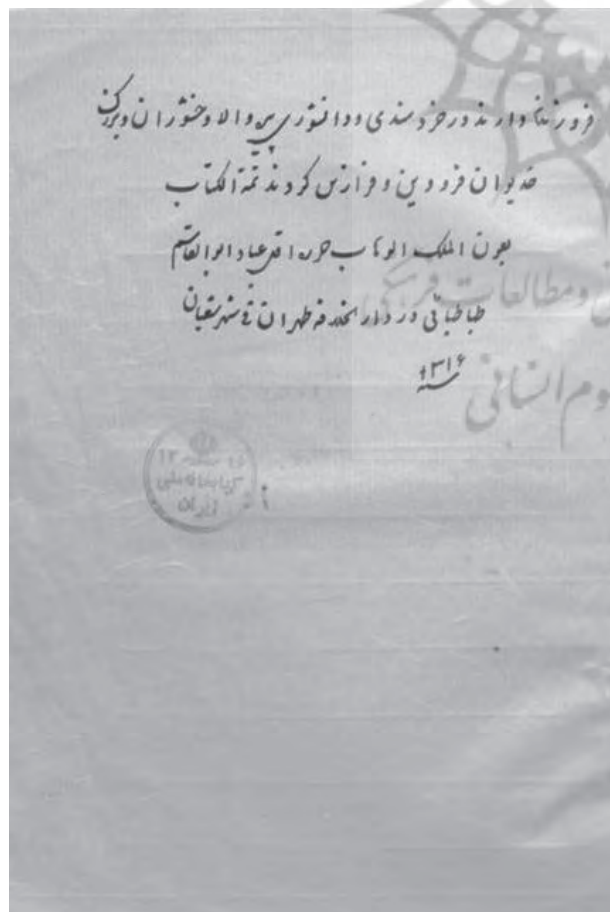 فروزنده دارند در خردمندی و دانشوری پی والا وخشوران و بزرگ
خدیوان فرودین و فرازش کردند تمة الکتاب
بعون الملک الوهاب حرره اقل عباد ابوالقاسم
طباطبائی در دار الخلافه طهران فی شهر شعبان
سنه ۱۳۱۶
و مطالعات فرهنگی
وم انسانی
کتابخانه ملی
ایران